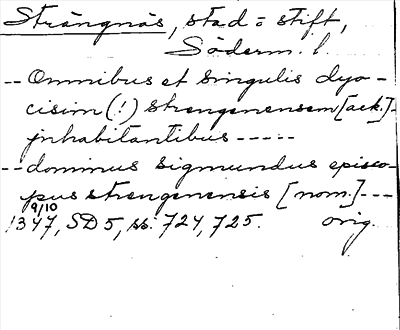 Strängnäs, stad = stift,
Söderm. l.
-- Omnibus et singulis dyo-
cisim (!) strengenensem [ack.]-
jnhabitantibus -----
-- dominus Sigmundus episco-
pus strengenensis [nom.]---
9/10
1347, SD 5, ss. 724, 725. orig.